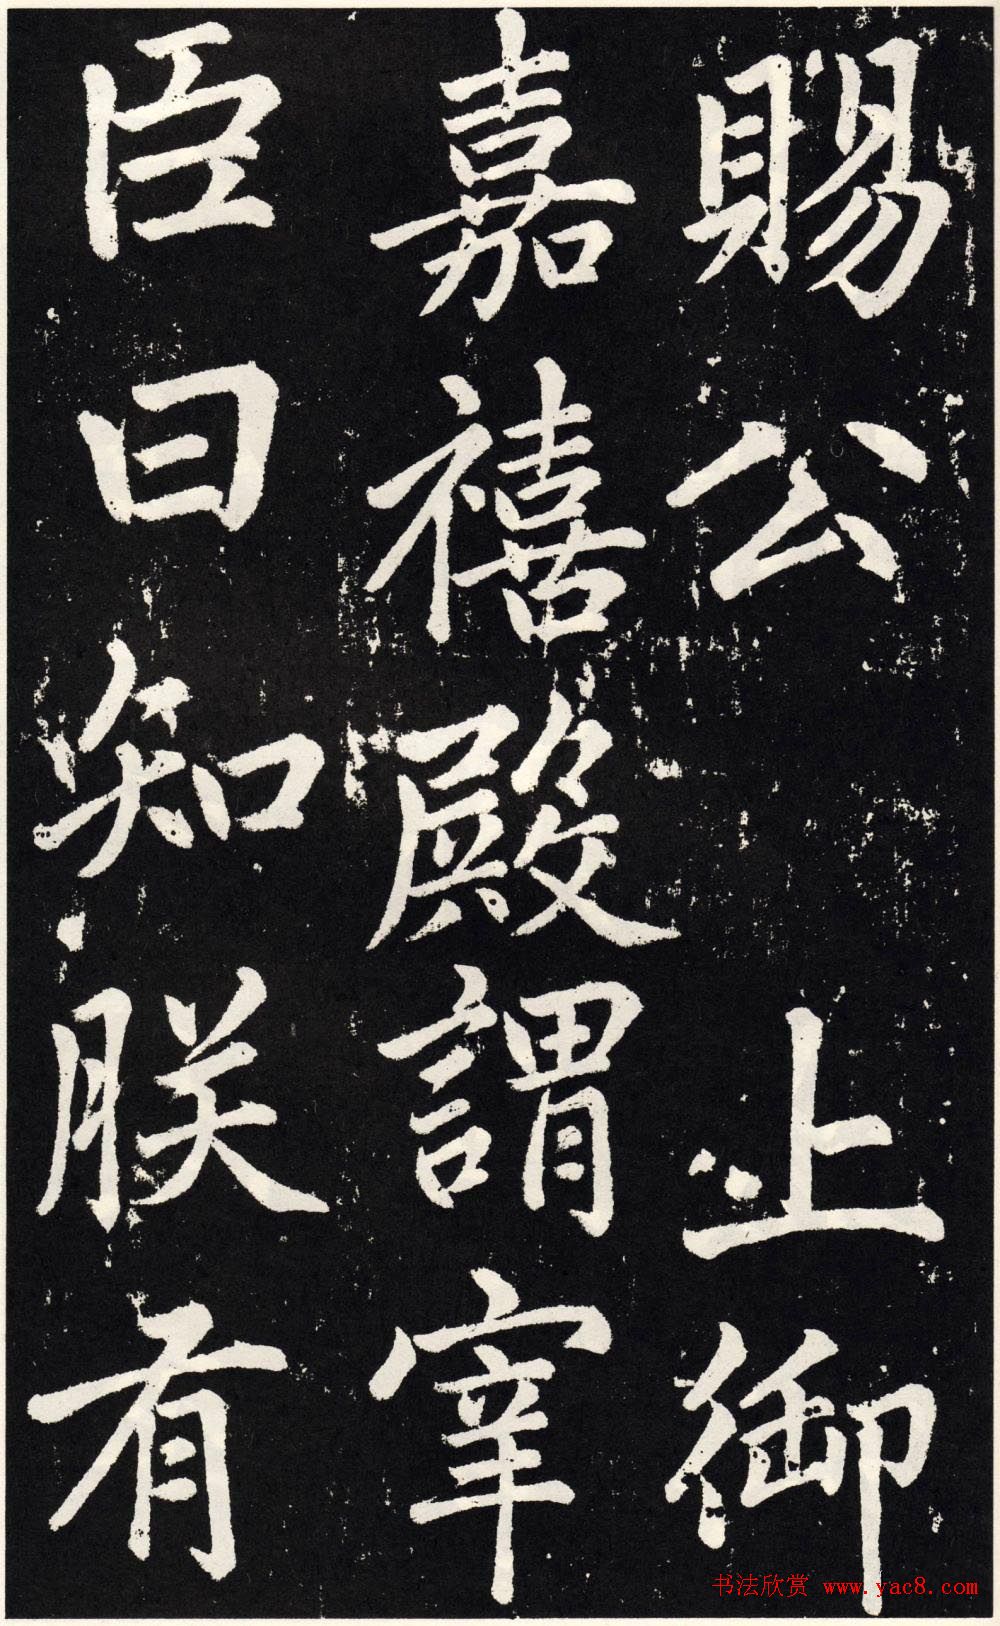 賜公 上御
嘉禧殿謂宰
臣曰知朕有
书法欣赏 www.yac8.com